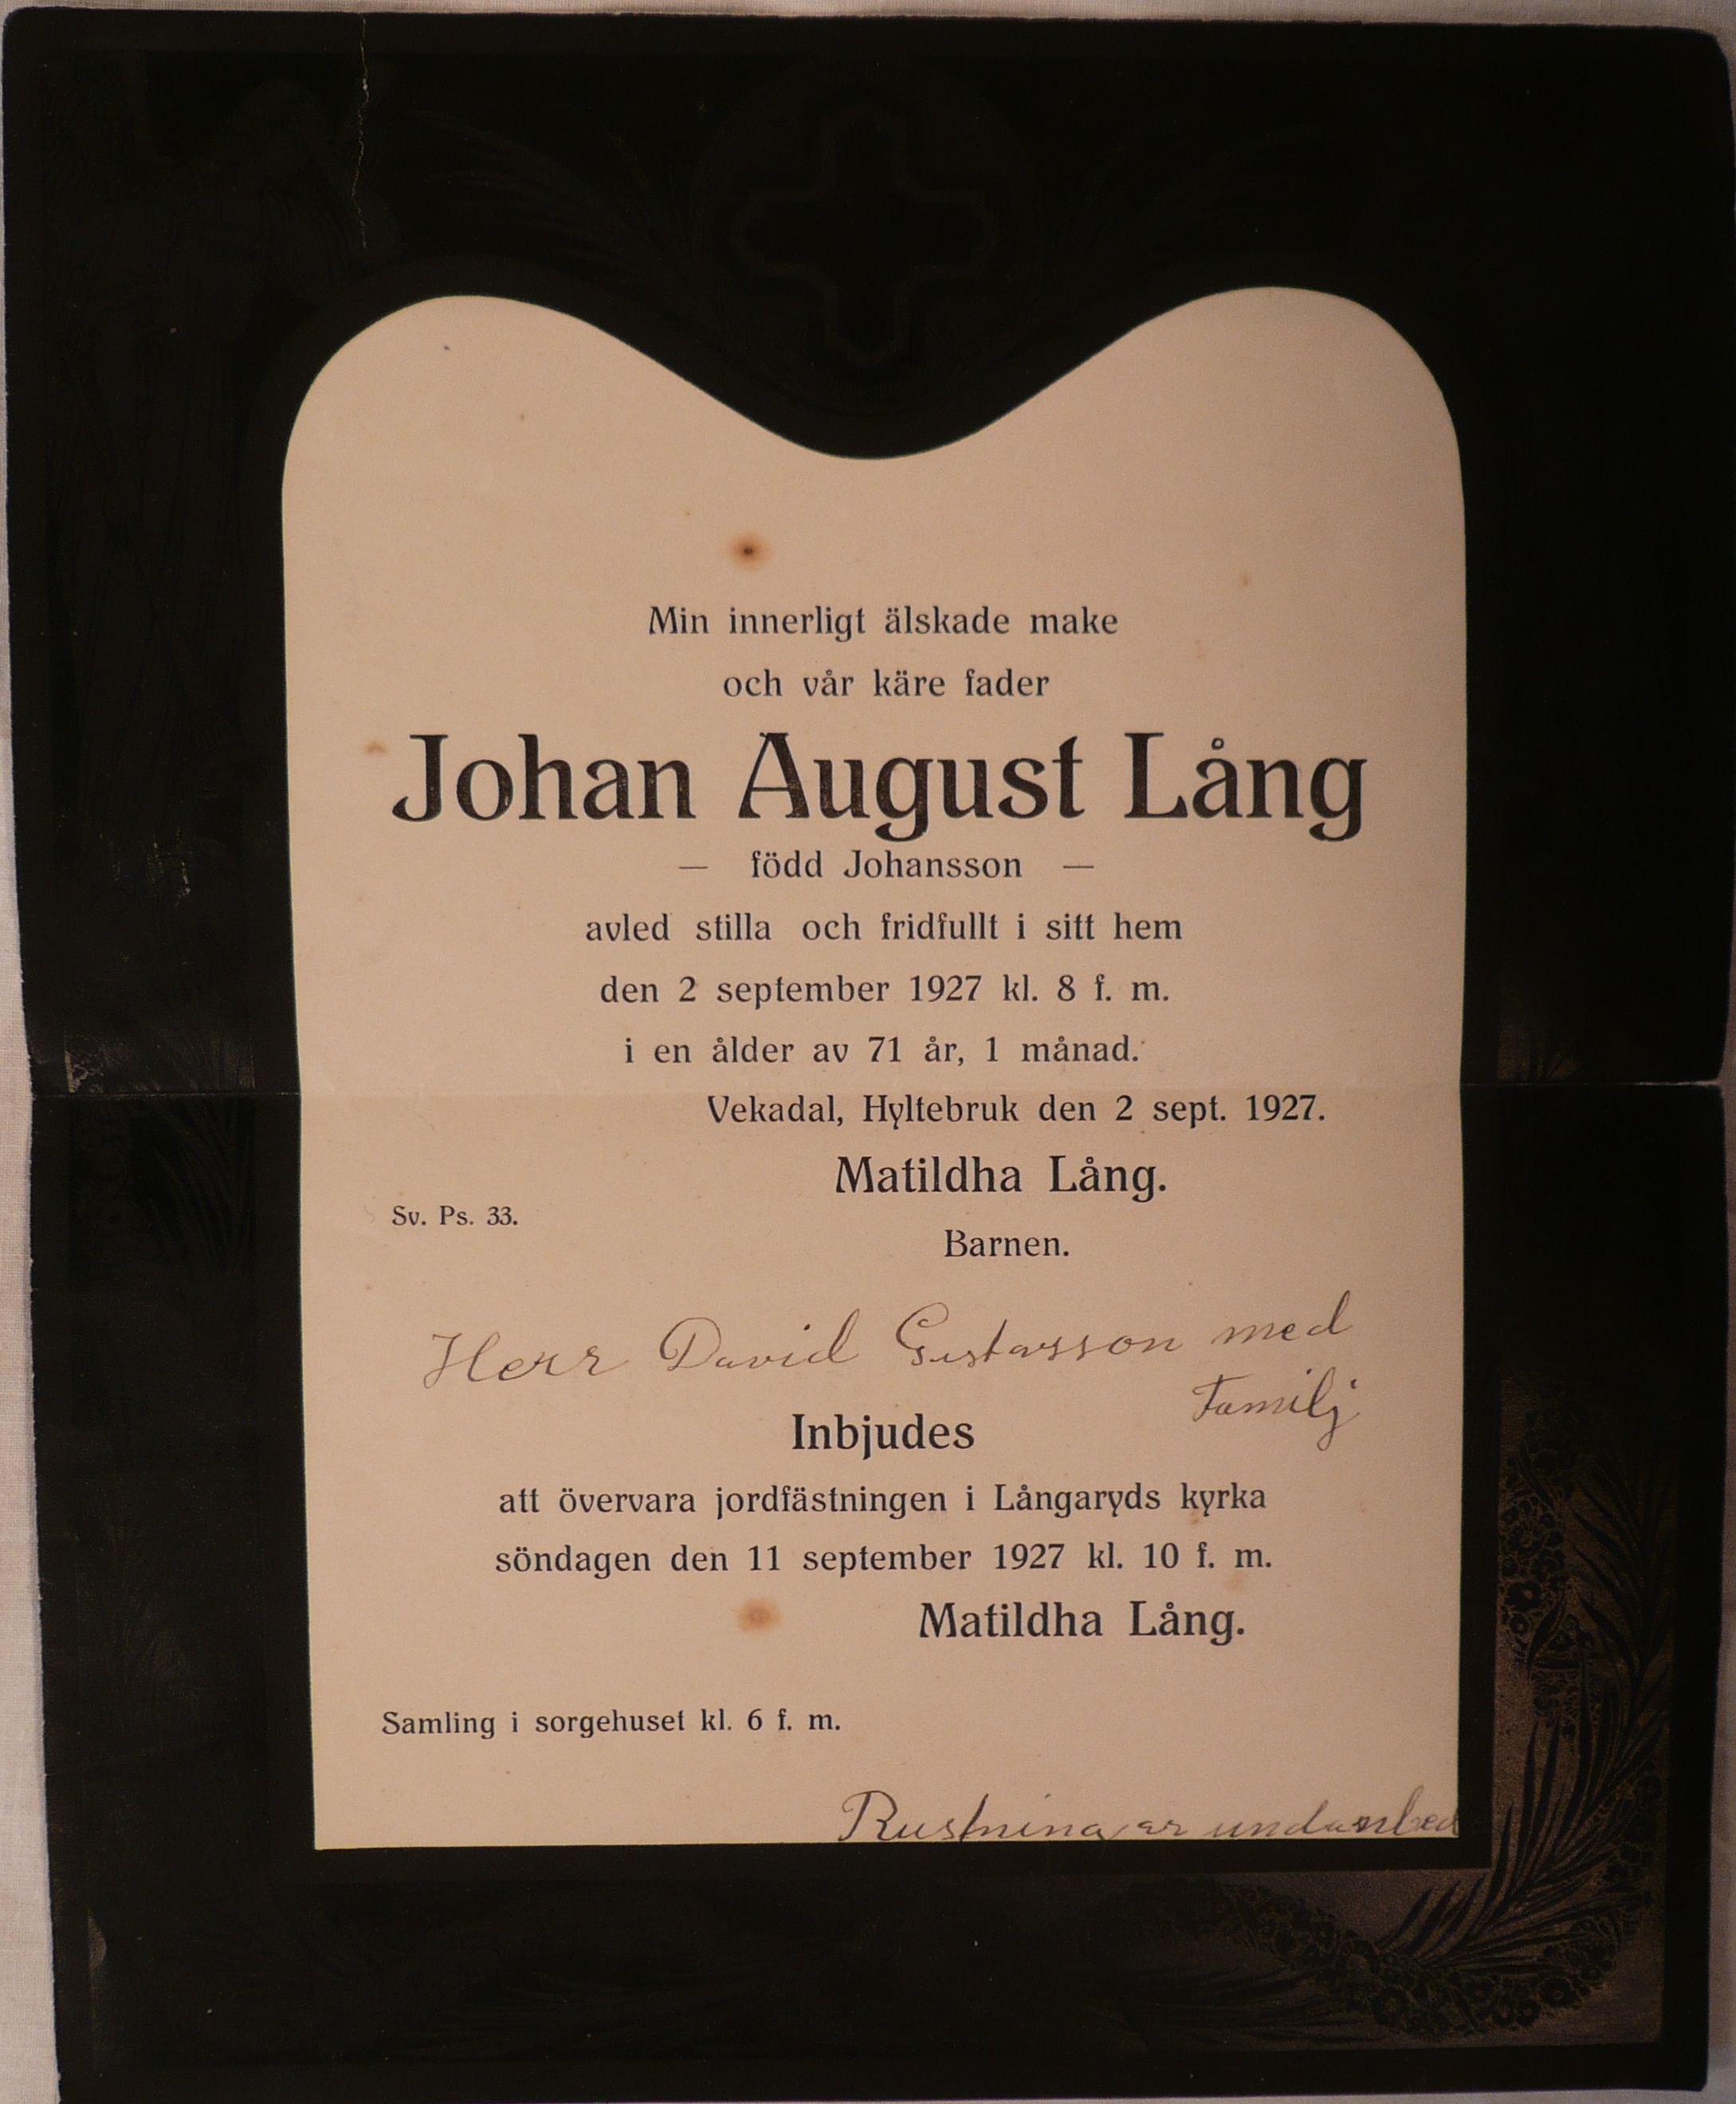 Min innerligt älskade make
och vår käre fader
Johan August Lång
— född Johansson —
avled stilla och fridfullt i sitt hem
den 2 september 1927 kl. 8 f. m.
i en ålder av 71 år, 1 månad.
Vekadal, Hyltebruk den 2 sept. 1927.
Matildha Lång.
Sv. Ps. 33.
Barnen.
Herr David Gustavsson med
Familj
Inbjudes
att övervara jordfästningen i Långaryds kyrka
söndagen den 11 september 1927 kl. 10 f. m.
Matildha Lång.
Samling i sorgehuset kl. 6 f. m.
Rustning er undanbed